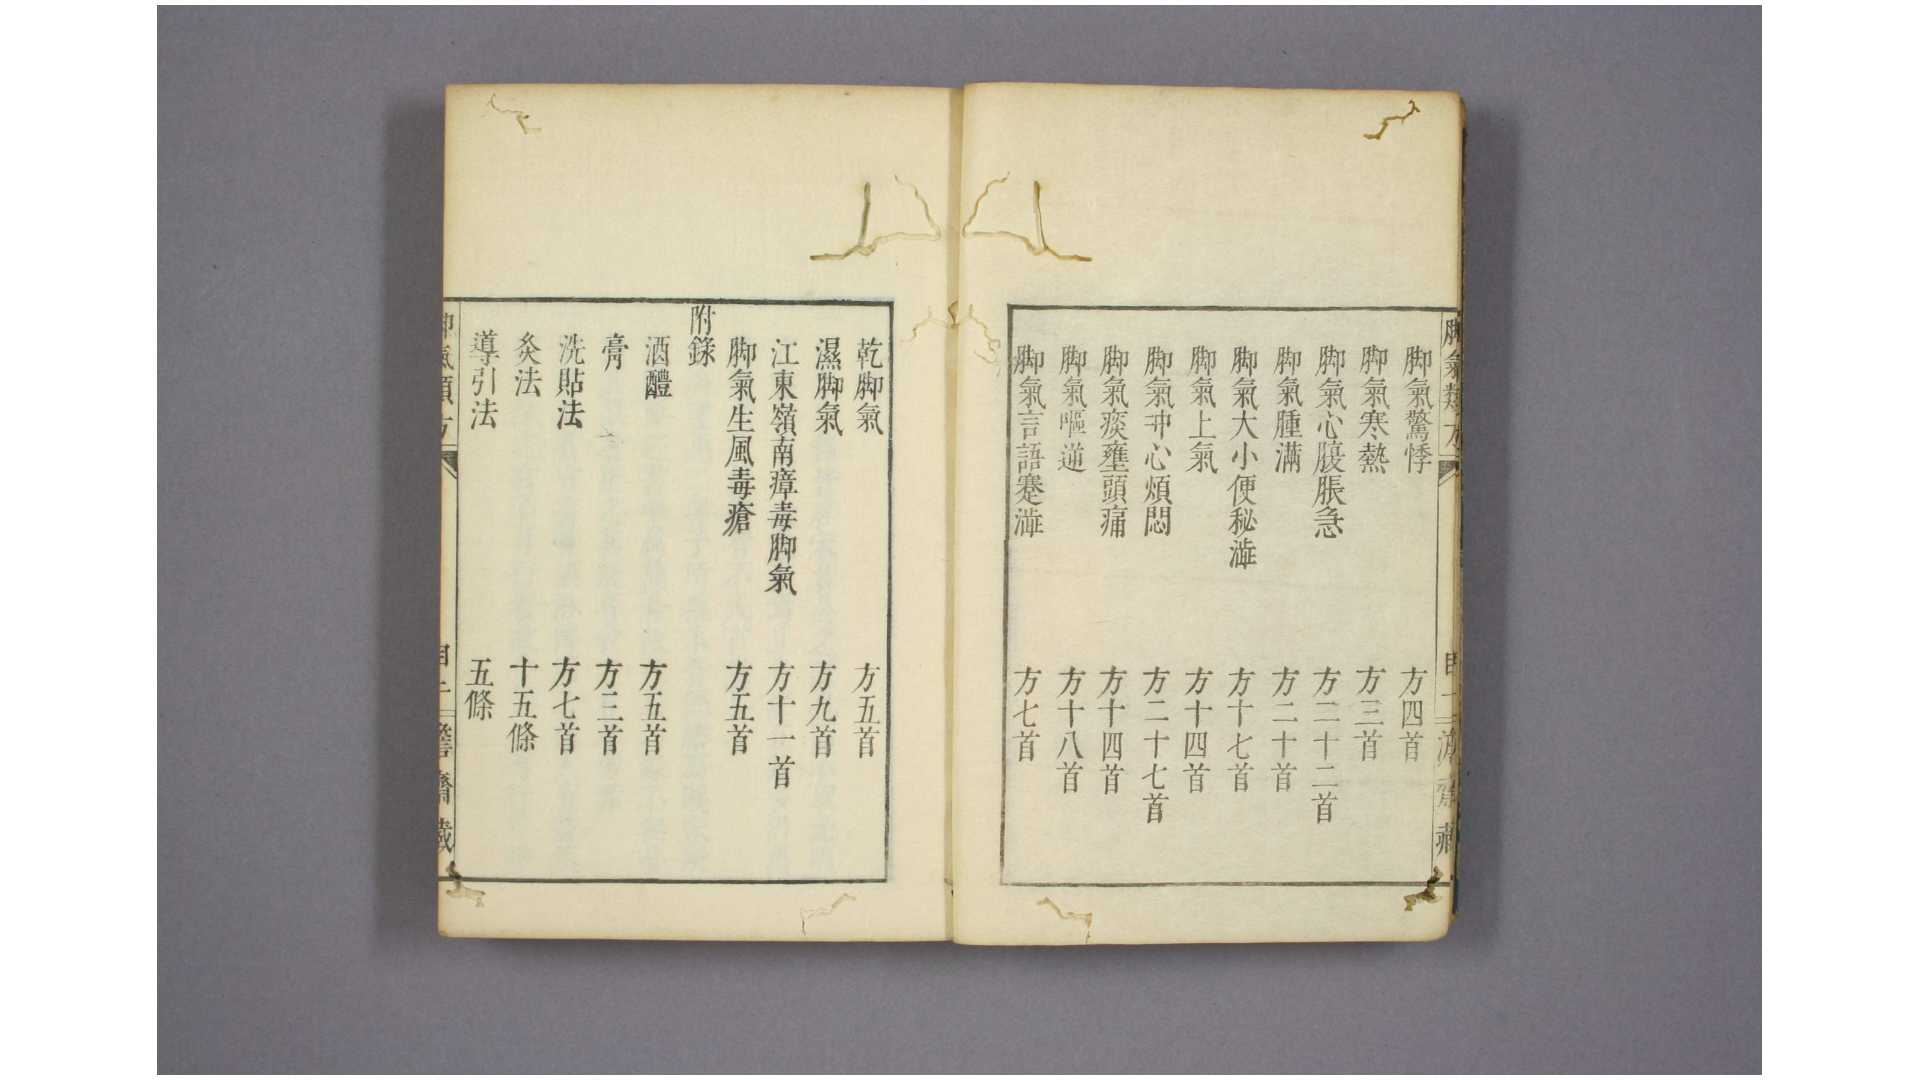 脚氣驚悸　方四首
脚氣寒熱　方三首
脚氣心腹脹急　方二十二首
脚氣腫滿　方二十首
脚氣大小便秘澁　方十七首
脚氣上氣　方十四首
脚氣冲心煩悶　方二十七首
脚氣痰壅頭痛　方十四首
脚氣嘔逆　方十八首
脚氣言語蹇澁　方七首
乾脚氣　方五首
濕脚氣　方九首
江東嶺南瘴毒脚氣　方十一首
脚氣生風毒瘡　方五首
附錄
酒醴　方五首
膏　方三首
洗貼法　方七首
灸法　十五條
導引法　五條